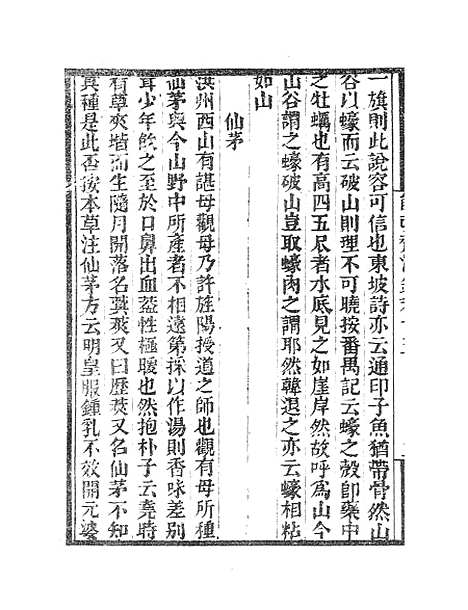 一旗則此說容可信也東坡詩亦云通印子魚猶帶骨然山
谷以蠔而云破山則理不可曉按番禺記云蠔之殼卽藥中
之牡蠣也有高四五尺者水底見之如崖岸然故呼爲山今
山谷謂之蠔破山豈取蠔肉之謂耶然韓退之亦云蠔相粘
如山
仙茅
洪州西山有諶母觀母乃許旌陽授道之師也觀有母所種
仙茅與今山野中所產者不相遠第採以作湯則香味差別
耳少年飮之至於口鼻出血蓋性極暖也然抱朴子云堯時
有草夾堦而生隨月開落名蓂莢又曰歷莢又名仙茅不知
眞種是此否按本草注仙茅方云明皇服鍾乳不效開元婆